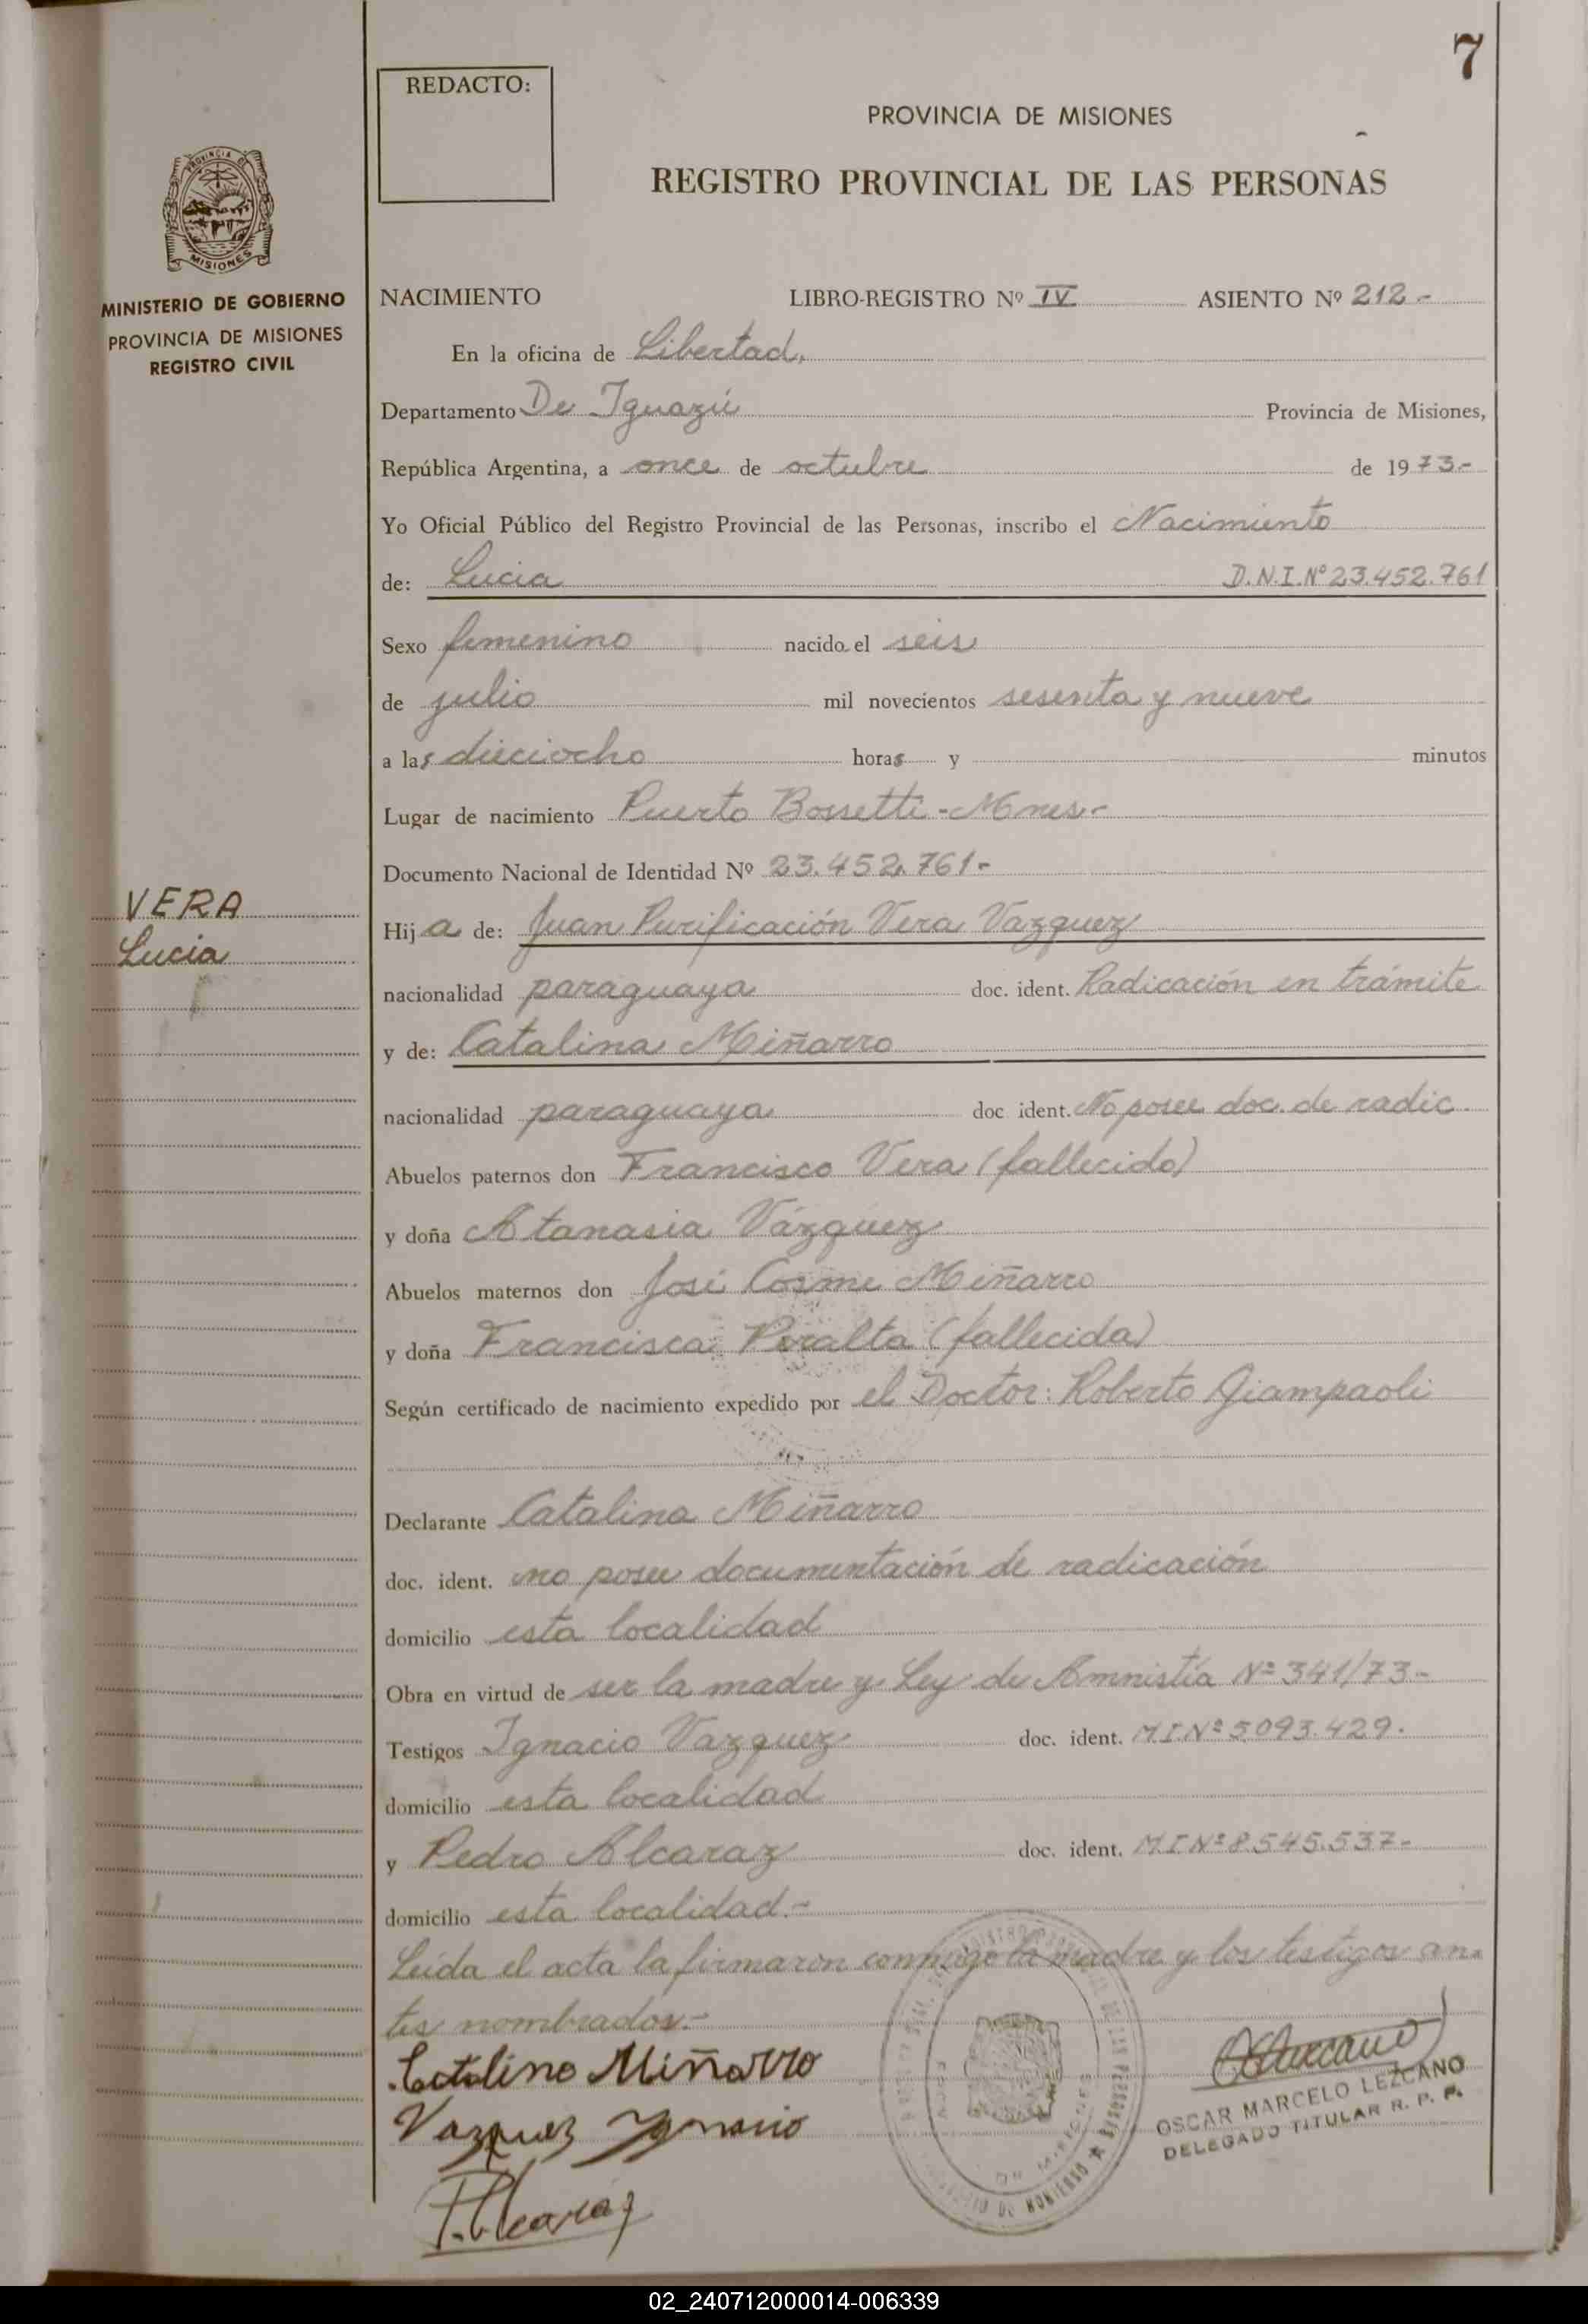 7
REDACTO:
PROVINCIA DE MISIONES
REGISTRO PROVINCIAL DE LAS PERSONAS
PROVINCIA DE
MISIONES
MINISTERIO DE GOBIERNO
PROVINCIA DE MISIONES
REGISTRO CIVIL
NACIMIENTO LIBRO-REGISTRO Nº IV ASIENTO Nº 212-
En la oficina de Libertad,
Departamento De Iguazú Provincia de Misiones,
República Argentina, a once de octubre de 1973.-
Yo Oficial Público del Registro Provincial de las Personas, inscribo el Nacimiento
de: Lucia D.N.I.Nº 23.452.761
Sexo femenino nacido el seis
de julio mil novecientos sesenta y nueve
a las dieciocho horas y minutos
Lugar de nacimiento Puerto Bossetti - Mnes.-
Documento Nacional de Identidad Nº 23.452.761-
VERA
Lucia
Hija de: Juan Purificación Vera Vazquez
nacionalidad paraguaya doc. ident. Radicación en trámite
y de: Catalina Miñarro
nacionalidad paraguaya doc ident. No posee doc. de radic.
Abuelos paternos don Francisco Vera (fallecido)
y doña Atanasia Vázquez
Abuelos maternos don José Cosme Miñarro
y doña Francisca Peralta (fallecida)
Según certificado de nacimiento expedido por el Doctor: Roberto Giampaoli
Declarante Catalina Miñarro
doc. ident. no posee documentación de radicación
domicilio esta localidad
Obra en virtud de ser la madre y Ley de Amnistía Nº 341/73.-
Testigos Ignacio Vazquez doc. ident. M.I.Nº 5.093.429.
domicilio esta localidad
y Pedro Alcaraz doc. ident. M.I Nº 8.545.537-
domicilio esta localidad.-
Leída el acta la firmaron conmigo la madre y los testigos an-
tes nombrados.-
Catalino Miñarro
Vazquez Ignacio
P. Alcaraz
OSCAR MARCELO LEZCANO
DELEGADO TITULAR R. P. P.
02_240712000014-006339